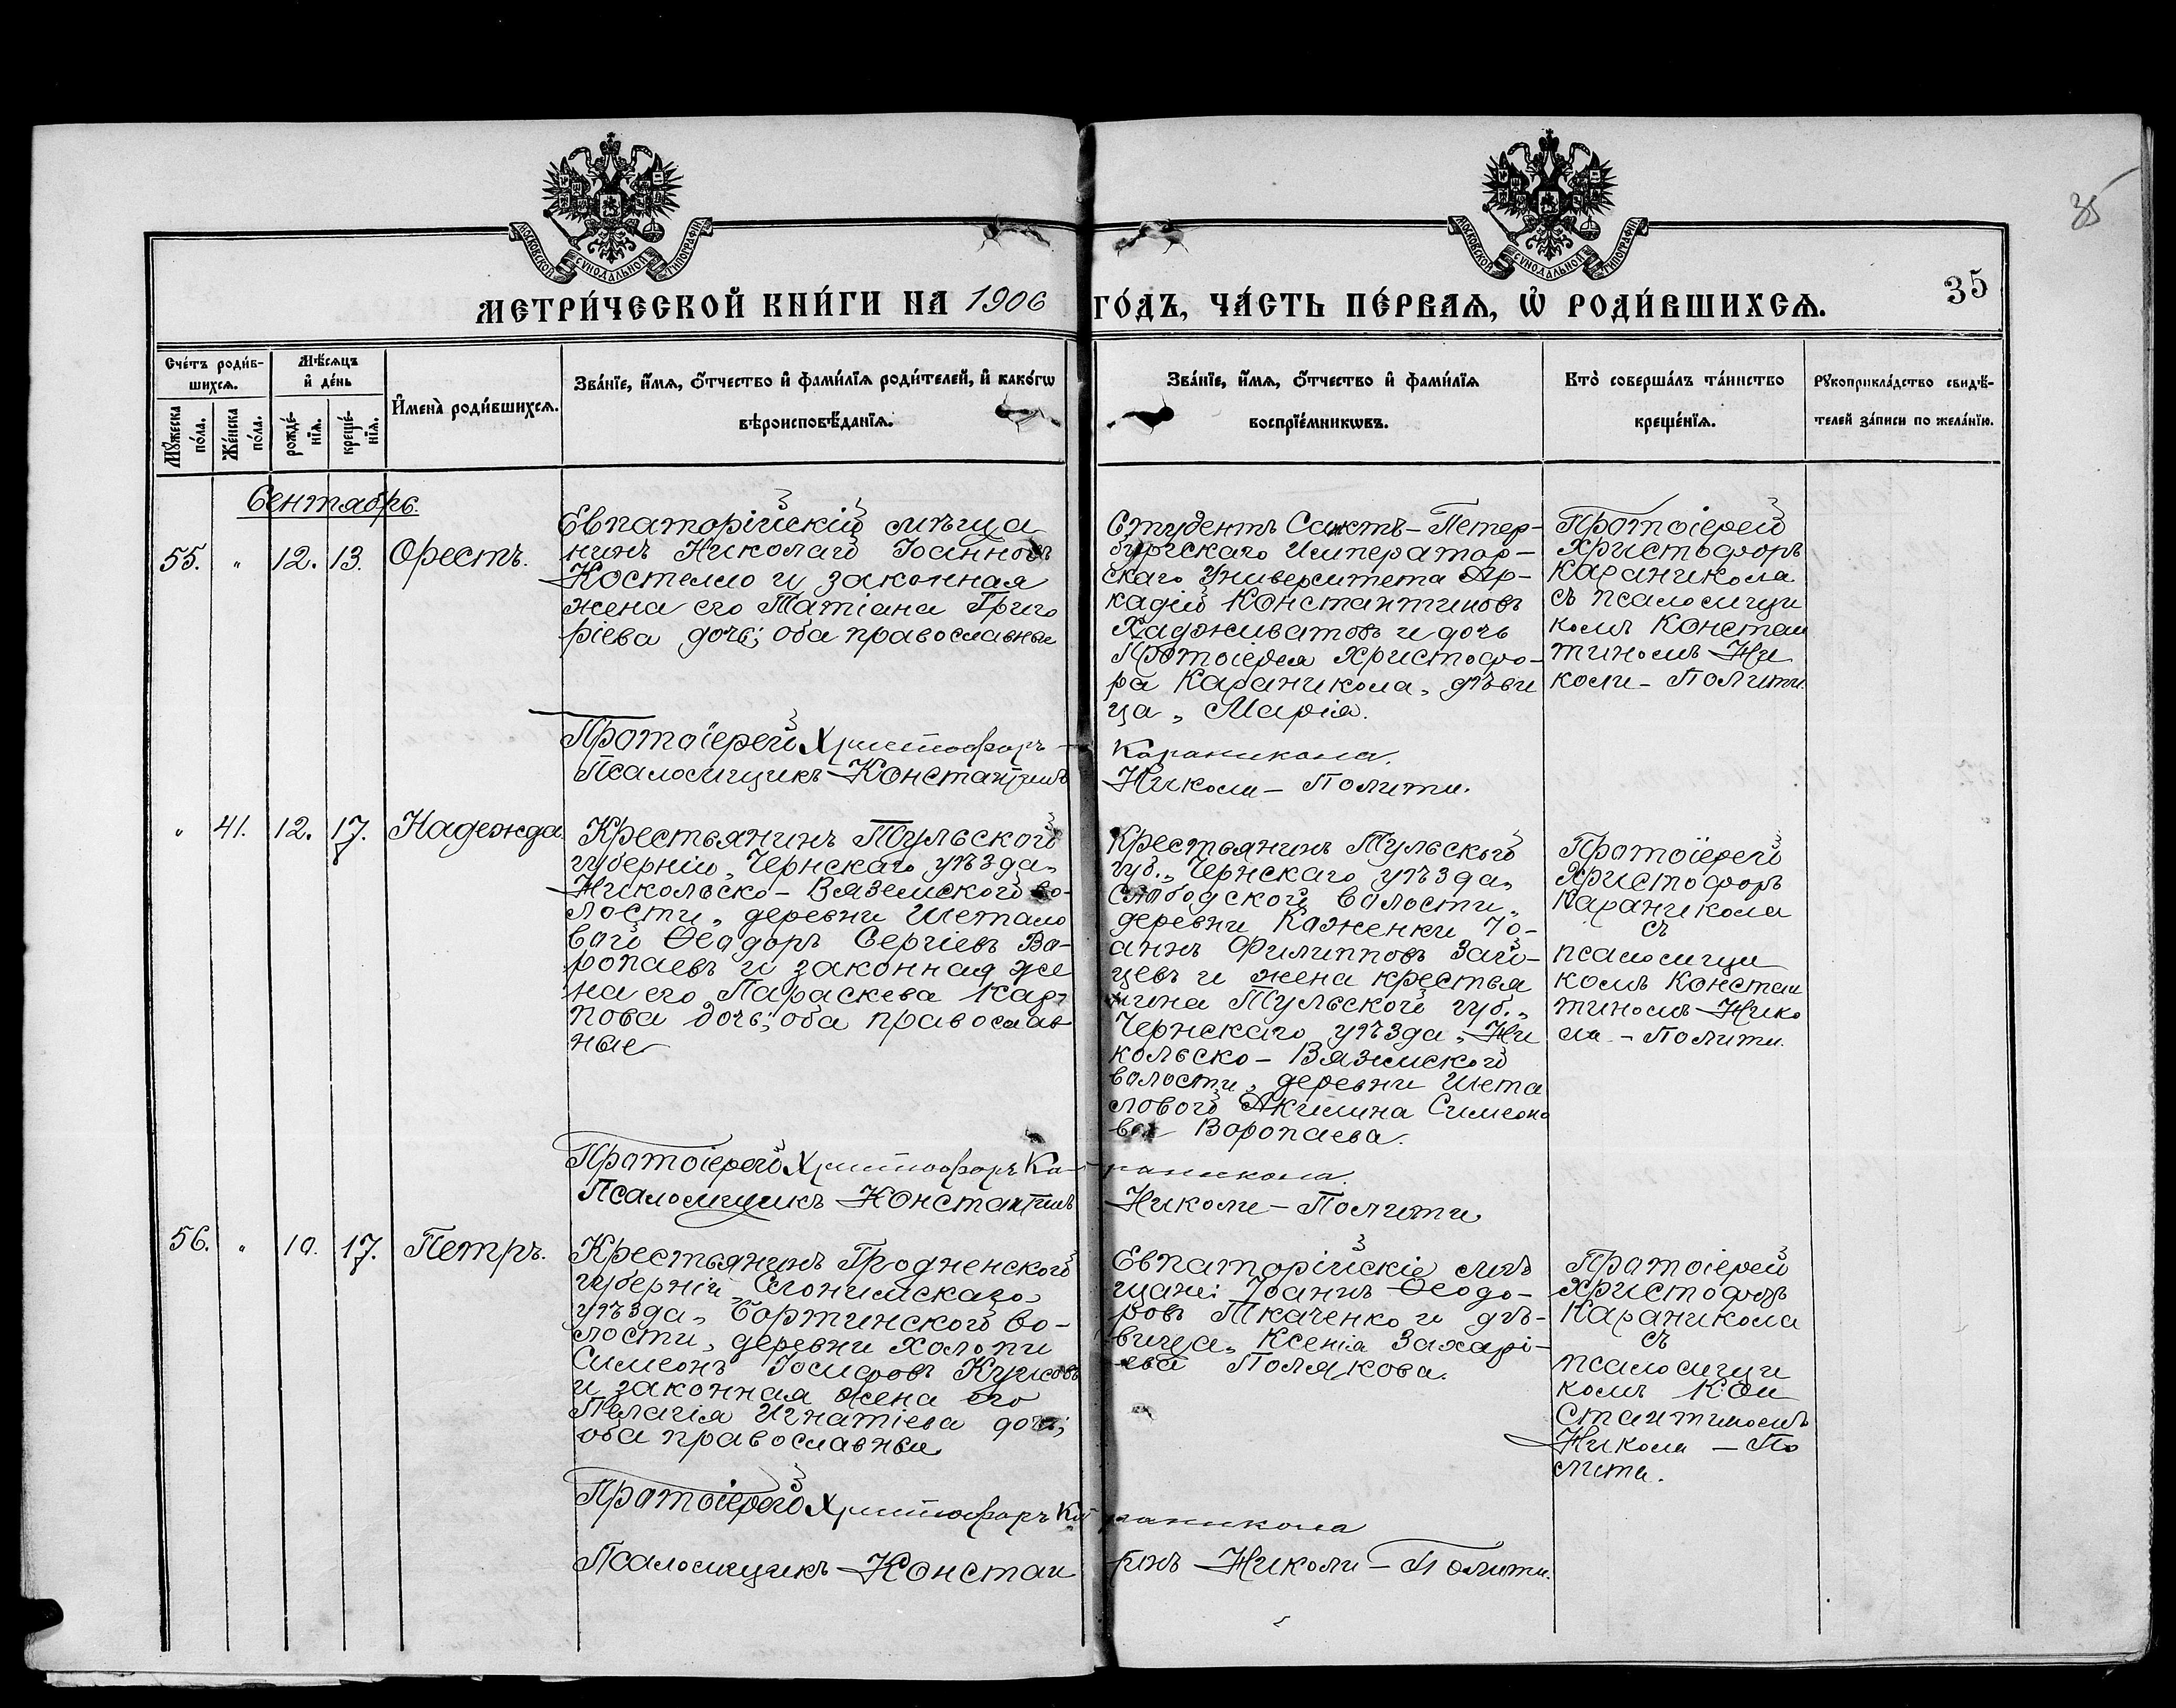 35
МОСКОВСКОЙ СѴНОДАЛЬНОЙ ТИПОГРАФІИ
МОСКОВСКОЙ СѴНОДАЛЬНОЙ ТИПОГРАФІИ
35
МЕТРИ́ЧЕСКОЙ КНИ́ГИ НА 1906 ГО́ДЪ, ЧА́СТЬ ПЕ́РВАѦ, Ѽ РОДИ́ВШИХСѦ.
Сче́тъ роди́в-
шихсѧ.
Мꙋ́жеска по́ла.
Же́нска по́ла.
Мѣ́сѧцъ
и҆ де́нь
рожде́-нїѧ.
креще́-нїѧ.
И҆мена̀ роди́вшихсѧ.
Зва́нїе, и҆́мѧ, ѻ҆́тчество и҆ фами́лїѧ роди́телей, и҆ како́гѡ
вѣроисповѣ́данїѧ.
Зва́нїе, и҆́мѧ, ѻ҆́тчество и҆ фами́лїѧ
воспрїе́мникѡвъ.
Кто̀ соверша́лъ та́инство
креще́нїѧ.
Рꙋкоприкла́дство свидѣ́-
телей за́писи по жела́нїю.
Сентябрь.
55. " 12. 13. Орестъ.
Евпаторійскій мѣща
нинъ Николай Іоанновъ
Костелло и законная
жена его Татіана Григо
ріева дочь; оба православные
Студентъ Санктъ-Петер-
бургскаго Император-
скаго Университета Ар-
кадій Константиновъ
Хадживатовъ и дочь
Протоіерея Христофо-
ра Караникола, дѣви
ца, Марія.
Протоіерей
Христофоръ
Караникола
съ псаломщи
комъ Констан
тиномъ Ни
коли-Полити.
Протоіерей Христофоръ Караникола.
Псаломщикъ Константинъ Николи-Полити.
" 41. 12. 17. Надежда
Крестьянинъ Тульской
губерніи, Чернскаго уѣзда,
Никольско-Вяземской во-
лости, деревни Шетало
вой Ѳеодоръ Сергіевъ Во-
ропаевъ и законная же
на его Параскева Кар-
пова дочь; оба православ
ные
Крестьянинъ Тульской
губ., Чернскаго уѣзда,
Слободской волости,
деревни Каженки Іо-
аннъ Филипповъ Зай-
цевъ и жена крестья
нина Тульской губ.,
Чернскаго уѣзда, Ни
кольско-Вяземской
волости, деревни Шета
ловой Акилина Симеоно
ва Воропаева.
Протоіерей
Христофоръ
Караникола
съ
псаломщи
комъ Констан
тиномъ Нико
ли-Полити.
Протоіерей Христофоръ Караникола.
Псаломщикъ Константинъ Николи-Полити
56. " 10. 17. Петръ.
Крестьянинъ Гродненской
губерніи, Слонимскаго
уѣзда, Бортинской во-
лости, деревни Холопи
Симеонъ Іосифовъ
и законная жена его
Пелагія Игнатіева дочь;
оба православные
Евпаторійскіе мѣ
щане: Іоаннъ Ѳеодо-
ровъ Ткаченко и дѣ-
вица, Ксенія Захарі-
ева Полякова.
Протоіерей
Христофоръ
Караникола
съ
псаломщи
комъ Кон
стантиномъ
Николи-По
лити.
Протоіерей Христофоръ Караникола
Псаломщикъ Константинъ Николи-Полити.